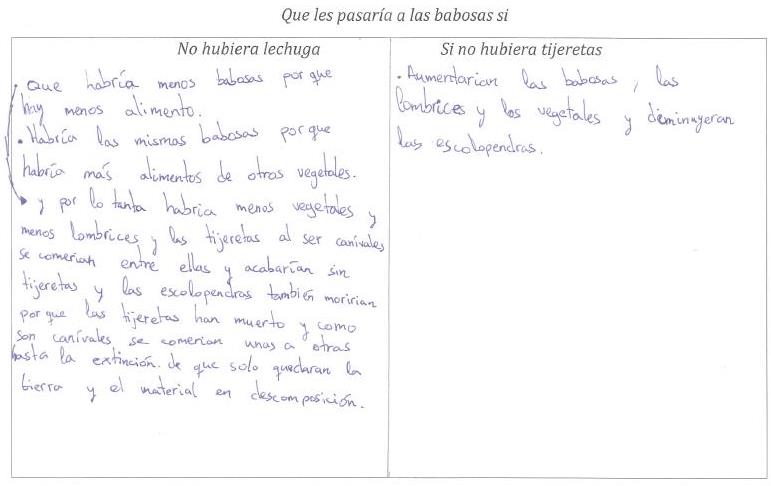 Que les pasaría a las babosas si
No hubiera lechuga
• Que habría menos babosas porque
hay menos alimento.
• Habría las mismas babosas porque
habría más alimentos de otros vegetales.
y por lo tanta habria menos vegetales y
menos lombrices y las tijeretas al ser canívales
se comerian entre ellas y acabarían sin
tijeretas y las escolopendras también moririan
porque las tijeretas han muerto y como
son canívales se comerian unas a otras
hasta la extinción. de que solo quedaran la
tierra y el material en descomposición.
Si no hubiera tijeretas
• Aumentarian las babosas, las
lombrices y los vegetales y diminuyeran
las escolopendras.